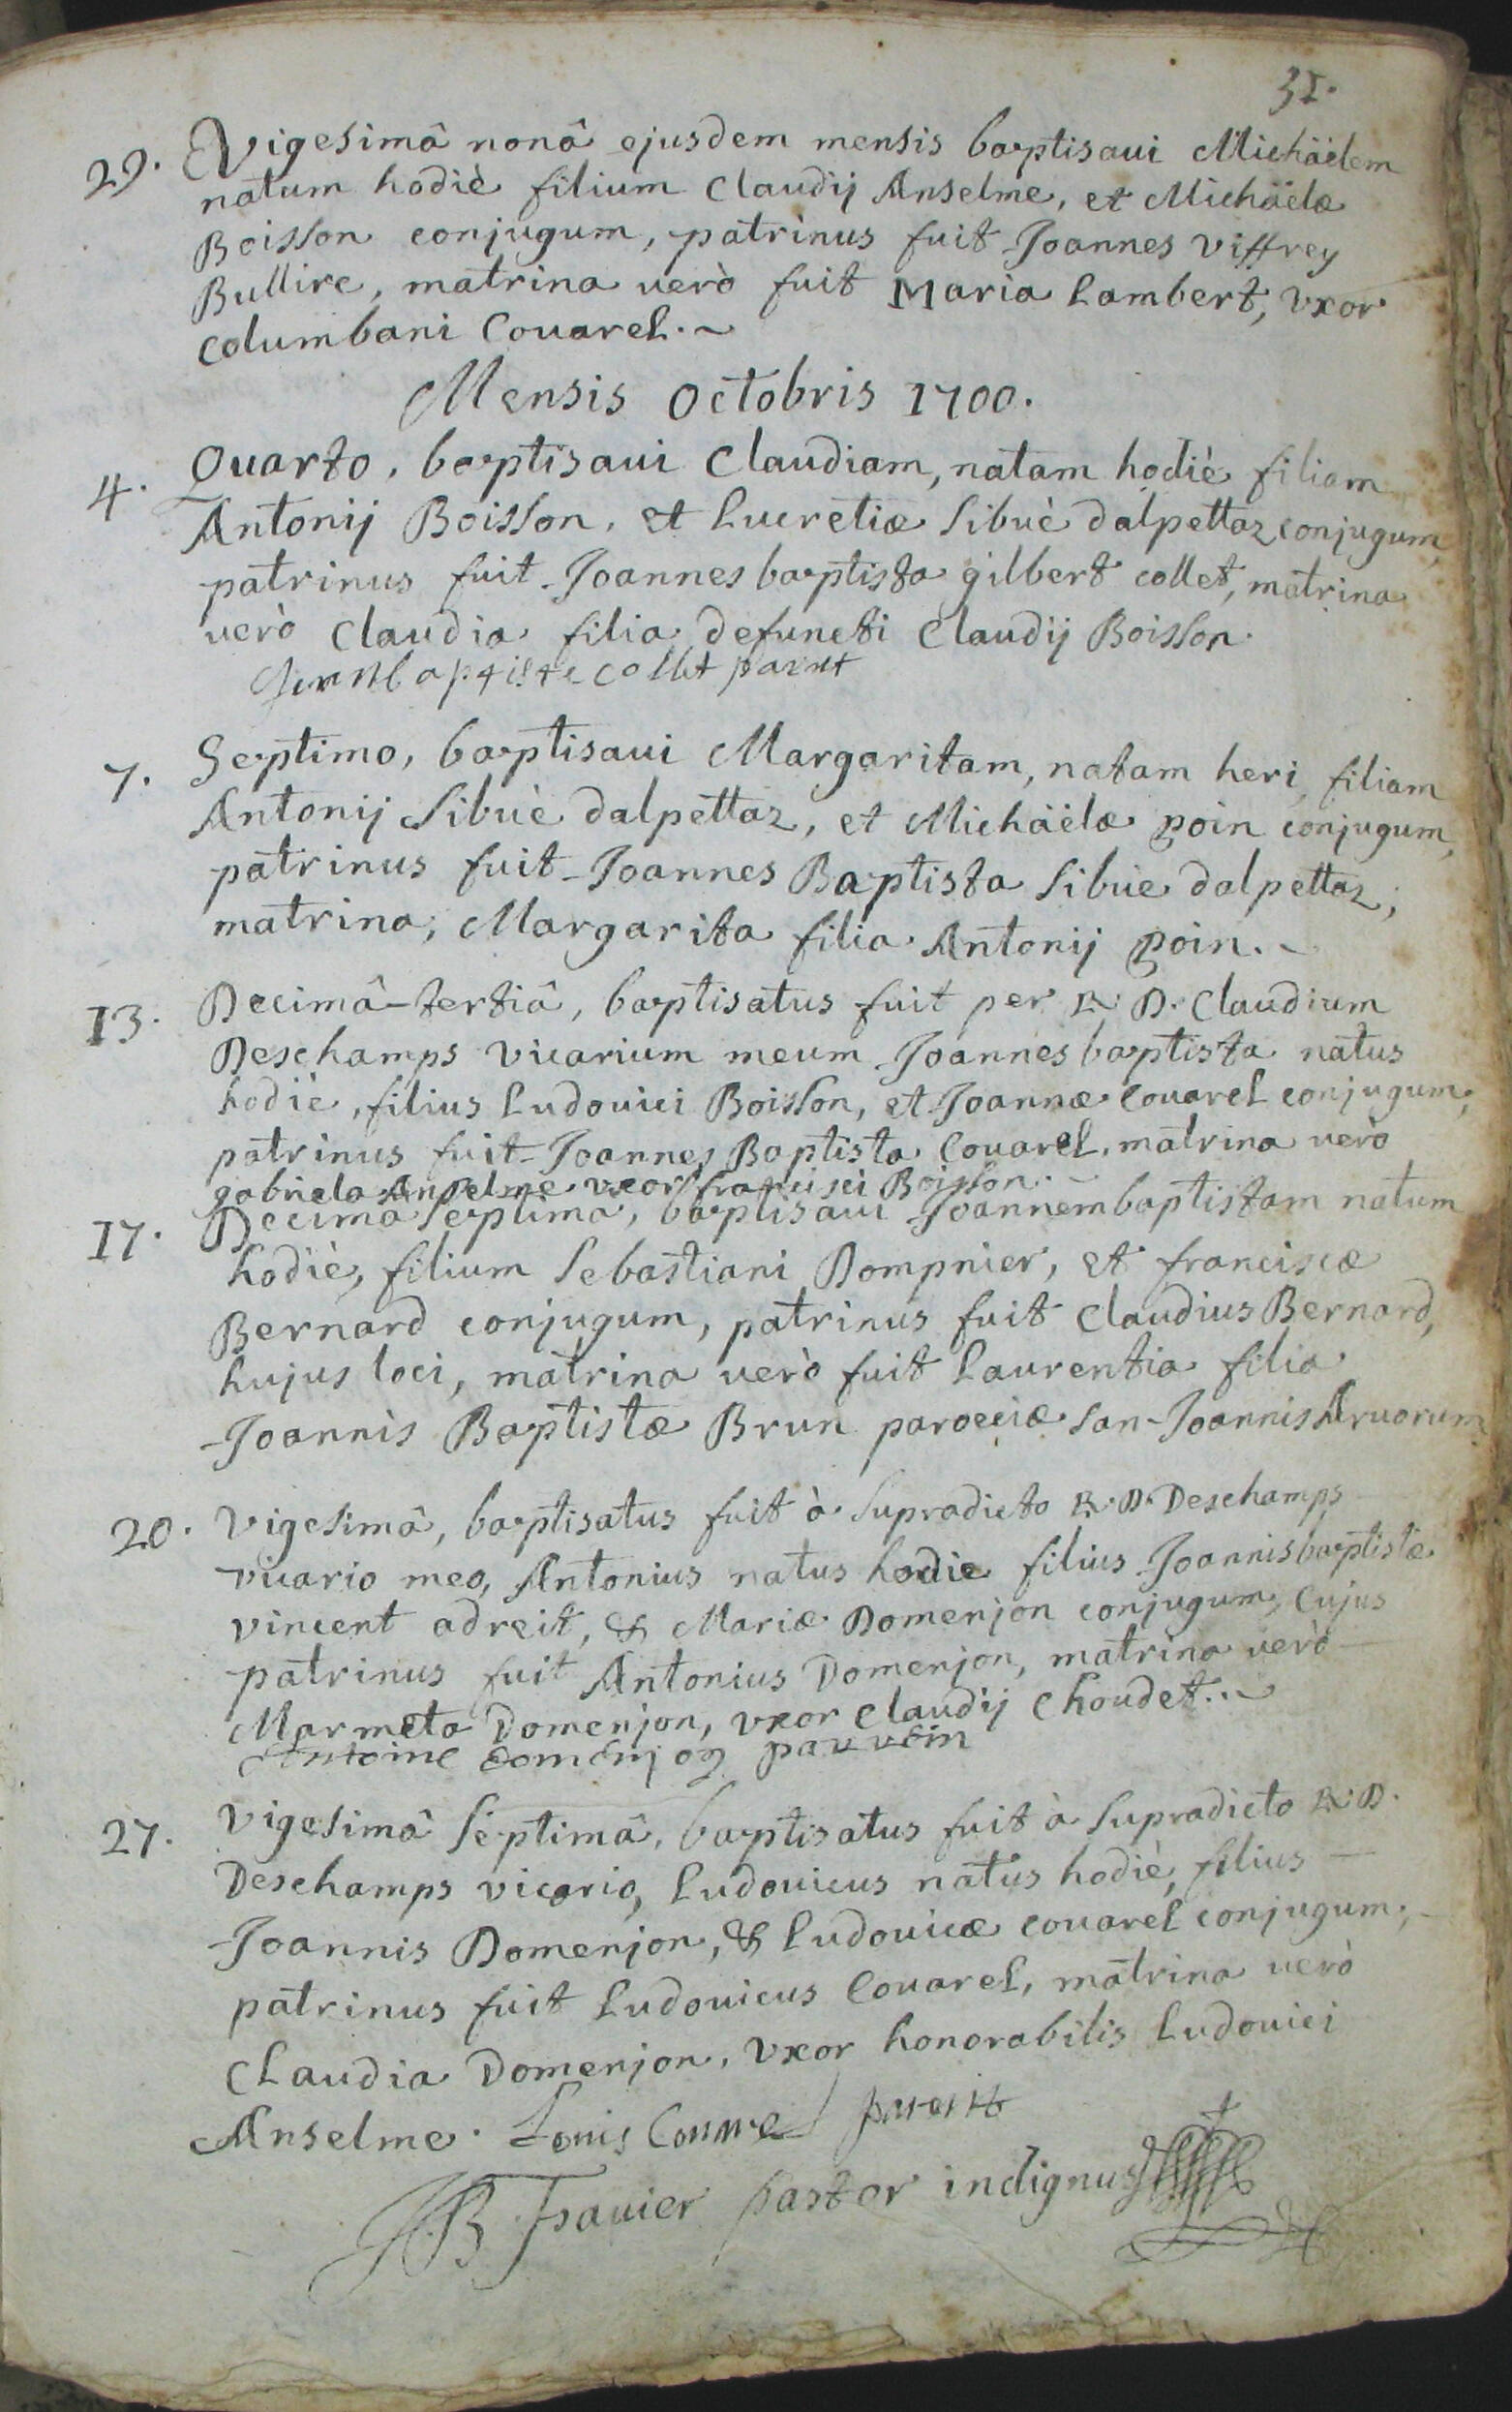 31.
29. Vigesimâ nonâ ejusdem mensis baptisaui Michäelem
natum hodiè filium Claudij Anselme, et Michäelæ
Boisson conjugum, patrinus fuit Joannes Viffrey
Bullire, matrina uerò fuit Maria Lambert, vxor
columbani Couarel.~
Mensis Octobris 1700.
4. Quarto, baptisaui Claudiam, natam hodiè filiam
Antonij Boisson, et Lucretiæ Sibuè dalpettaz conjugum,
patrinus fuit Joannes baptista gilbert collet, matrina
uerò Claudia filia defuncti Claudij Boisson.
Jean baptiste collet
7. Septimo, baptisaui Margaritam, natam heri, filiam
Antonij Sibuè dalpettaz, et Michäelæ poin conjugum,
patrinus fuit Joannes Baptista Sibue dalpettaz;
matrina, Margarita filia Antonij poin.~
13. Decimâ-tertiâ, baptisatus fuit per R. D. Claudium
Deschamps vicarium meum Joannes baptista natus
hodiè, filius Ludouici Boisson, et Joannæ Couarel conjugum,
patrinus fuit Joannes Baptista Couarel, matrina uerò
gabriela Anselme vxor francisci Boisson.
17. Decima septima, baptisaui Joannem baptistam natum
hodiè, filium Sebastiani Dompnier, et franciscæ
Bernard conjugum, patrinus fuit Claudius Bernard,
hujus loci, matrina uerò fuit Laurentia filia
Joannis Baptistæ Brun parocciæ San-Joannis Aruorum
20. Vigesimâ, baptisatus fuit à supradicto R. D. Deschamps
vicario meo, Antonius natus hodie filius Joannis baptistæ
vincent adreit, & Mariæ Domenjon conjugum, Cujus
patrinus fuit Antonius Domenjon, matrina uerò
Marmeta Domenjon, vxor Claudij Choudet..~
Antoine domenjon
27. Vigesimâ Septimâ, baptisatus fuit à supradicto R. D.
Deschamps vicario, Ludouicus natus hodiè, filius
Joannis Domenjon, & Ludouicæ couarel conjugum,
patrinus fuit Ludouicus Couarel, matrina uerò
Claudia Domenjon, vxor honorabilis Ludouici
Anselme. Louis
JB pastor indignus